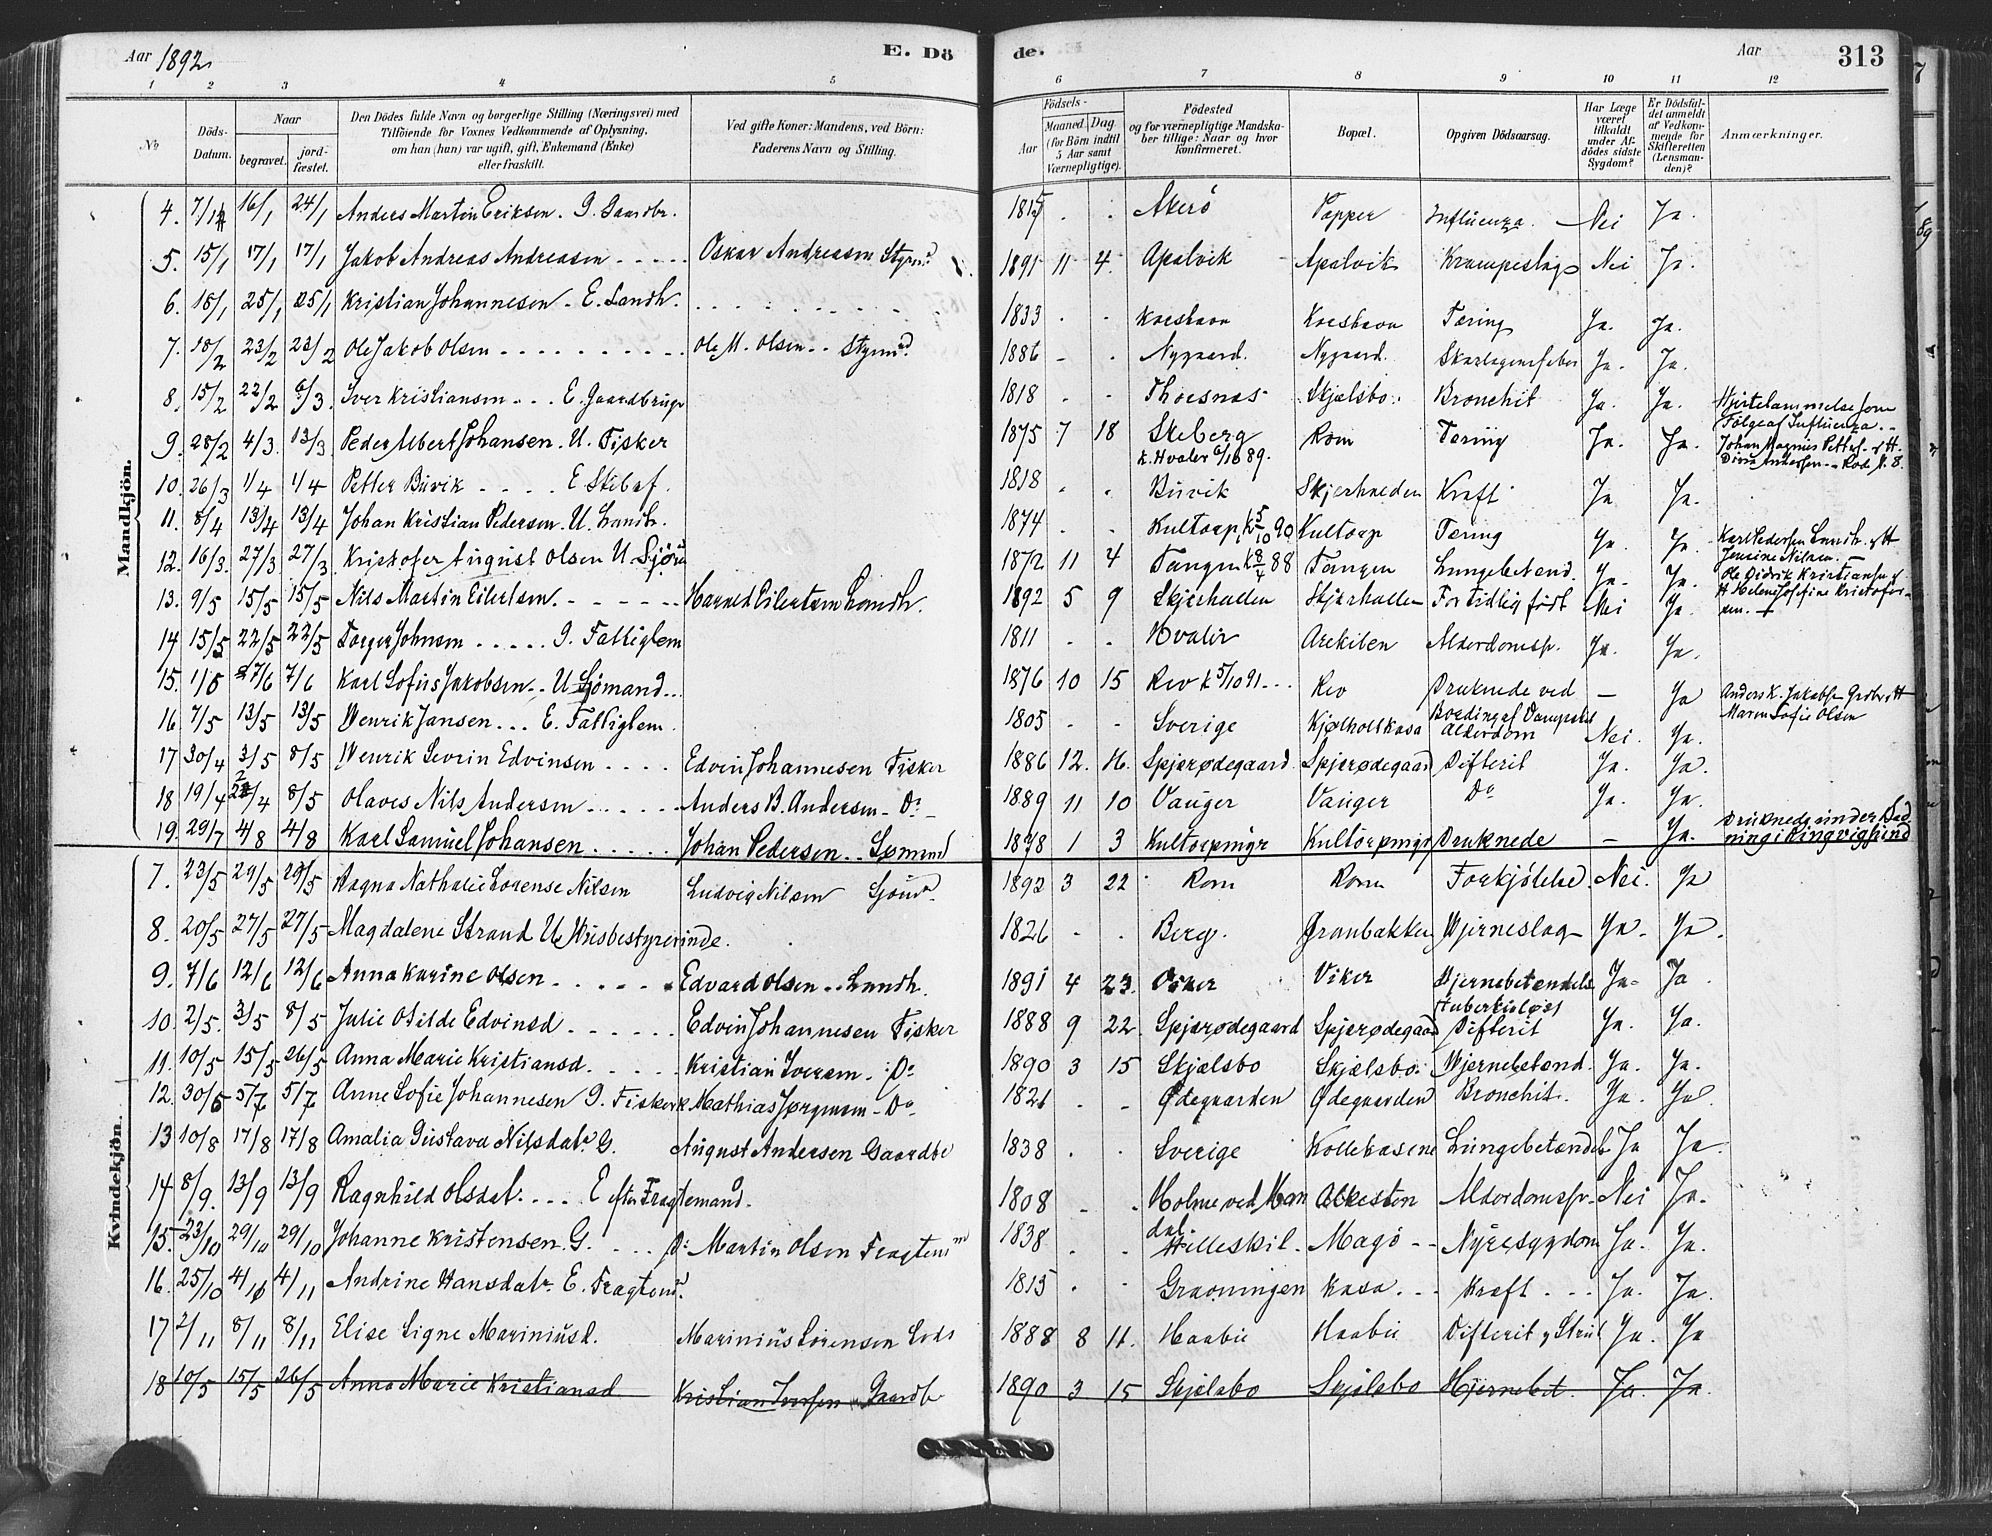 Aar 1892 E. Dö de. Aar 313
1 2 3 4 5 6 7 8 9 10 11 12
No
Döds-Datum.
Naar
begravet.
jord-fæstet.
Den Dödes fulde Navn og borgerlige Stilling (Næringsvei) med
Tilföiende for Voxnes Vedkommende af Oplysning,
om han (hun) var ugift, gift, Enkemand (Enke)
eller fraskilt.
Ved gifte Koner: Mandens, ved Börn:
Faderens Navn og Stilling.
Födsels-
Aar
Maaned. Dag.
(for Börn indtil
5 Aar samt
Værnepligtige).
Födested
og for værnepligtige Mandska-
ber tillige: Naar og hvor
konfirmeret.
Bopæl.
Opgiven Dödsaarsag.
Har Læge
været
tilkaldt
under Af-
dödes sidste
Sygdom?
Er Dödsfal-
det anmeldt
af Vedkom-
mende for
Skifteretten
(Lensman-
den)?
Anmærkninger.
Mandkjön.
4. 7/1 16/1 24/1 Anders Martin Eriksen. G. Gaardbr. 1815 . . Akerö Papper Influenza. Nei Ja.
5. 15/1 17/1 17/1 Jakob Andreas Andreasen - - - - - Oskar Andreasen Styrmd 1891 11 4. Apalvik Apalvik Krampeslag Nei Ja.
6. 18/1 25/1 25/1 Kristian Johannesen - E. Landh. 1833 . . Koeshavn Koeshavn Tæring Ja. Ja.
7. 18/2 23/2 23/2 Ole Jakob Olsen - - - - - Ole M. Olsen - - Styrmd. 1886 - . Nygaard. Nygaard. Skarlagensfeber Ja. Ja.
8. 15/2 22/2 6/3 Iver Kristiansen - - - E. Gaardbruge 1818 . . Thoesnæs Skjælsbo. Bronchit Ja. Ja. Hjertelammelse som
Følge af Influenza. -
9. 28/2 4/3 13/3 Peder Albert Johansen. U. Fisker 1875 7 18 Skeberg Rom Tæring Ja. Ja. Johan Magnus Petters. & H.
k. Hvaler 6/10 89. Dina Andersen - Rød N. 8.
10. 26/3 1/4 1/4 Petter Buvik - - - - E 1818 . . Buvik Skjerhalden Kræft Ja Ja.
11. 8/4 13/4 13/4 Johan Kristian Pedersen. U. Landh. 1874 . . Kultorp, k 5/10 90 Kultorp Tæring Ja. Ja. Karl Pedersen Landh. & H
Jensine Nilsen. -
12. 16/3. 27/3 27/3 Kristofer August Olsen U Sjøm 1872 11 4 Tangen k 8/4 88 Tangen Lungebetænd. Ja. Ja. Ole Didrik Kristiansen &
H Helene Josefine Kristofer-
sen. +
13. 9/5 15/5 15/5 Nils Martin Eilertsen. - - - - - Harned Eilertsen Landh. 1892 5 9 Skjærhallen Skjærhallen For tidlig født Nei Ja.
14 15/5 22/5 22/5 Torger Johnsen - - - - - G. Fattiglem 1811 . . Hvaler Arekilen Alderdomssv. Ja. Ja.
15. 7/6 7/6 Karl Sofus Jakobsen - - U Sjømand - - 1876 10 15 Rev k 5/10 91 - - - Rev Druknede ved - Ja Anders K. Jakobsen Grdbr & H
Bording af Dampskib Maren Sofie Olsen
16 7/5 13/5 13/5 Henrik Jansen - - - E. Fattiglem. 1805 - . Sverige Kjølholtkasa Alderdom Nei. Ja.
17 30/4 3/5 8/5 Henrik Sevrin Edvinsen - - - - Edvin Johannesen Fisker 1886 12. 16. Spjærødegaard. Spjærødegaard Difterit Ja. Ja.
18 19/4 22/4 8/5 Olaves Nils Andersen - - - - - Anders B. Andersen - Do - 1889 11 10 Vauger Vauger Do Ja. Ja.
19. 29/7 4/8 4/8 Karl Samuel Johansen - - - - - Johan Pedersen - - Sømand 1878 1 3 Kultorpmyr Kultorpmyr Druknede - Ja. Druknede under Bad-
ning i Ringvigsund
Kvindekjön.
7. 23/5 29/5 29/5 Ragna Nathalie Lorense Nilsen Ludvig Nilsen Sjømd. 1892 3 22 Rom Rom Forkjølelse. Nei. Ja
8. 20/5 27/5 27/5 Magdalene Strand U Husbestyrerinde. 1826 - . Berg. Granbakken Hjerneslag Ja. Ja.
9. 7/6 12/6 12/6 Anna Karine Olsen - - - - - Edvard Olsen - - Landh. 1891 4 23. Viker Viker Hjernebetændelse Ja. Ja
tuberkuløst
10. 2/5. 3/5 8/5 Julie Otilde Edvinsd - - - - - Edvin Johannesen Fisker 1888 9 22 Spjærødegaard Spjærødegaard Difterit Ja. Ja.
11. 10/5 15/5 26/5 Anna Marie Kristiansd. - - - - Kristian Iversen - Do 1890 3 15 Skjælsbo Skjælsbo. Hjernebetænd. Ja. Ja.
12. 30/6 5/7 5/7 Anne Sofie Johannesen G. Fisker Mathias Jørgensen - Do 1821 - . Ødegaarden Ødegaarden Bronchit. Ja. Ja.
13 10/8 17/8 17/8 Amalia Gustava Nilsdatr. G. August Andersen Gaardbr 1838 . . Sverige Kollebasene Lungebetændelse Ja Ja.
14 8/9. 13/9 13/9 Ragnhild Olsdat. - - - E efter Fragtemand. 1808 - . Holme ved Man Alkesten Alderdomssv. Nei Ja.
dal.
15. 23/10 29/10 29/10 Johanne Kristensen. G. - - - Martin Olsen Fragtem 1838 . . Hilleskil. Magø - - Nyresygdom Ja. Ja.
16. 25/10 4/10 4/11 Andrine Hansdatr. E. Fragtemd. 1815 . . Graaningen Kasa - - Kræft - - - Ja. Ja.
17 2/11 8/11 8/11 Elise Signe Mariniusd. Marinius Sørensen Lods 1888 8 11. Haabu Haabu Difterit & Strub Ja. Ja
18 10/5 15/5 26/5 Anna Marie Kristiansd Kristian Iversen Gaardb 1890 3 15 Skjælsbo Skjælsbo Hjernebet. Ja. Ja.